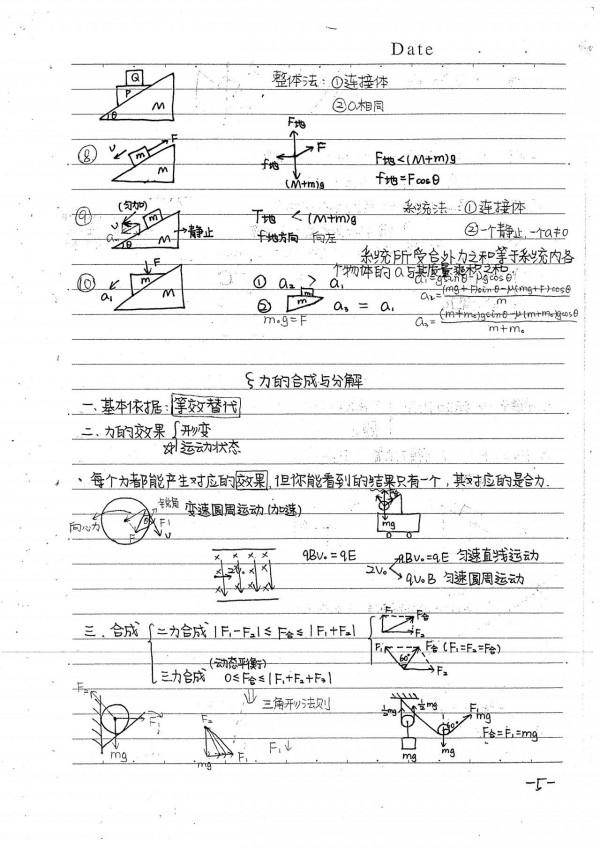 Date
Q
P
M
θ
整体法：①连接体
②a相同
⑧
υ
F
m
M
F地
F
f地
(M+m)g
F地<(M+m)g
f地=Fcosθ
⑨
(匀加)
υ
a
m
M
θ
静止
T地 < (M+m)g
f地方向 向左
系统法：①连接体
②一个静止,一个a≠0
系统所受合外力之和等于系统内各
个物体的a与其质量乘积之和.
⑩
F
a₁
m
M
① a₂ > a₁
② a₃ = a₁
m
M
m₀g=F
a₁=gsinθ-μgcosθ
a₂=(mg+F)sinθ-μ(mg+F)cosθ/m
a₃=(m+m₀)gsinθ-μ(m+m₀)gcosθ/m+m₀
§力的合成与分解
一、基本依据：等效替代
二、力的效果 { 形变
运动状态
、每个力都能产生对应的效果,但你能看到的结果只有一个,其对应的是合力.
向心力
F
F₁
υ
变速圆周运动(加速)
mg
qBV₀=qE
2V₀
qBV₀=qE 匀速直线运动
qV₀B 匀速圆周运动
三.合成 { 二力合成 |F₁-F₂|≤F合≤|F₁+F₂|
F₁
F合
F₂
F₁
60°
F合(F₁=F₂=F合)
F₂
(动态平衡)
三力合成 0≤F合≤|F₁+F₂+F₃|
三角形法则
F₂
F₁
mg
F₂
F₁
mg
F₁↓
½mg
½mg
60°
F₁
mg
mg
mg
F合=F₁=mg
-5-